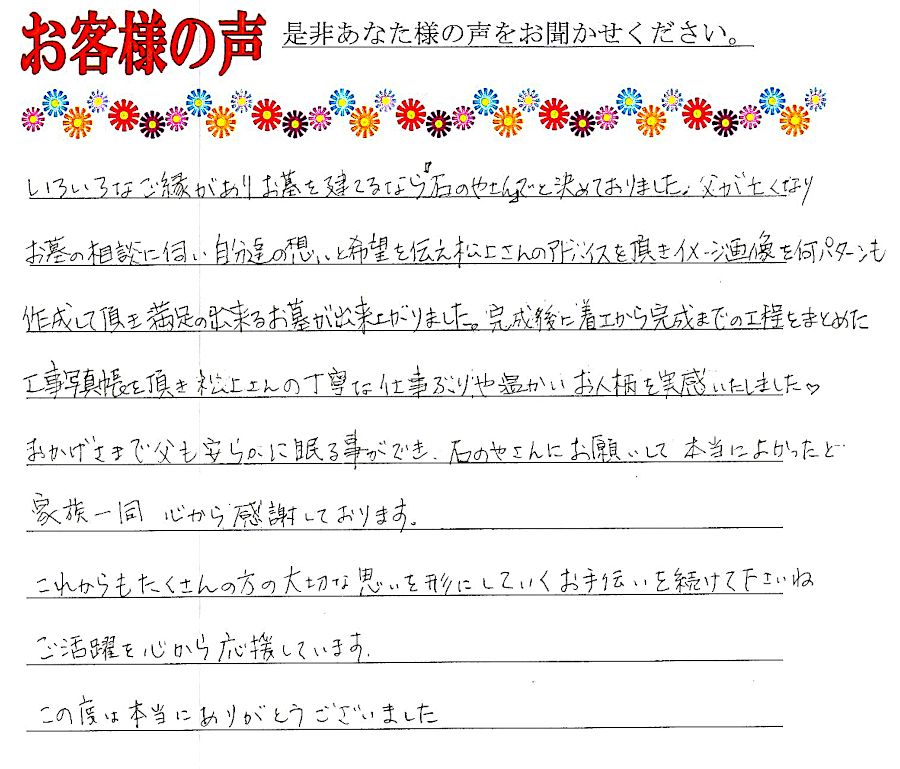 お客様の声 是非あなた様の声をお聞かせください。
いろいろなご縁がありお墓を建てるなら"石のやさんでと決めておりました。父が亡くなり
お墓の相談に伺い自分達の想いと希望を伝え松上さんのアドバイスを頂きイメージ画像を何パターンも
作成して頂き満足の出来るお墓が出来上がりました。完成後に着工から完成までの工程をまとめた
工事写真帳を頂き松上さんの丁寧な仕事ぶりや温かいお人柄を実感いたしました♡
おかげさまで父も安らかに眠る事ができ、石のやさんにお願いして本当によかったと
家族一同 心から感謝しております。
これからもたくさんの方の大切な思いを形にしていくお手伝いを続けて下さいね
ご活躍を心から応援しています。
この度は本当にありがとうございました